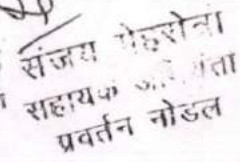 संजय मेहरोत्रा
सहायक
प्रवर्तन नोडल